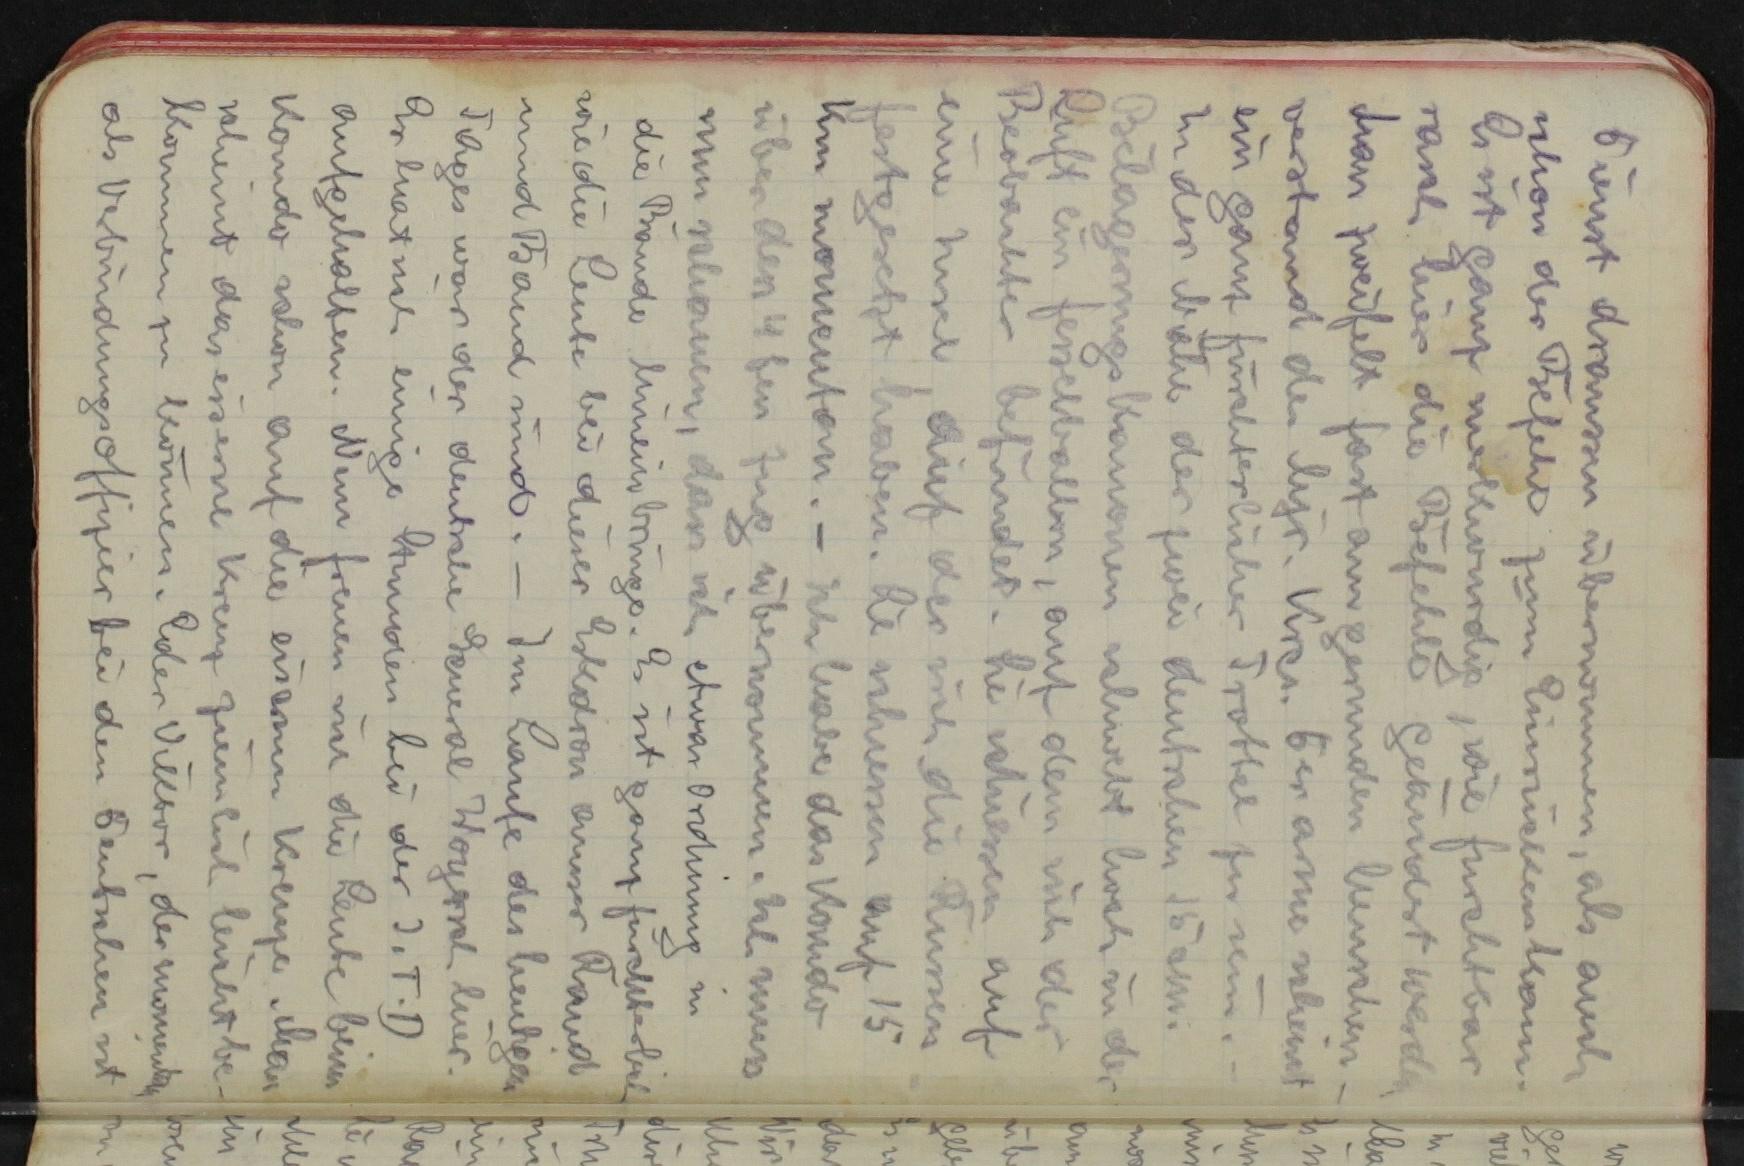 Dienst draussen übernommen, als auch
schon der Befehl zum Einrücken kam.
Es ist ganz merkwürdig, wie furchtbar
rasch hier die Befehle geändert werden
Man zweifelt fast am gesunden Menschen-
verstand des Kdos. Der arme scheint
ein ganz fürchterlicher Trottel zu sein. -
In der Nähe der zwei deutschen 15 cm.
Belagerungskanonen schwebt hoch in der
Luft ein Fesselballon, auf dem sich der
Beobachter befindet. Sie schiessen auf
eine Insel, auf der sich die Russen
festgesetzt haben. Sie schiessen auf 15
Km momentan. - Ich habe das Komdo
über den 4ten Zug übernommen. Ich muss
nun schauen, dass ich etwas Ordnung in
die Bande hineinbringe. Es ist ganz fürchterlich
wie die Leute bei dieser Eskdron ausser Rand
und Band sind. - Im Laufe des heutigen
Tages war der deutsche General Woyrsch hier.
Er hat sich einige Stunden bei der 2. T. D
aufgehalten. Nun freuen sich die Leute beim
Komdo schon auf die eisernen Kreuze. Man
scheint das eiserne Kreuz ziemlich leicht be-
kommen zu können. Eder Viktor, der momentan
als VerbindungsOffizier bei den Deutschen ist